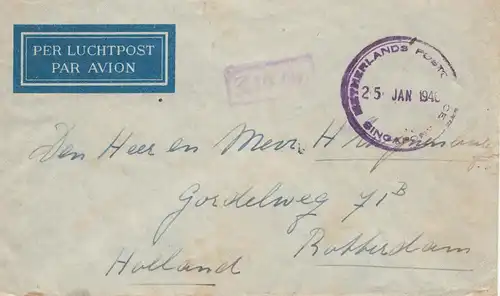 PER LUCHTPOST
PAR AVION
NETHERLANDS POST
25 JAN 194
SINGAPO
Den Heer en Mevr. H
Gordelweg 71B
Rotterdam
Holland